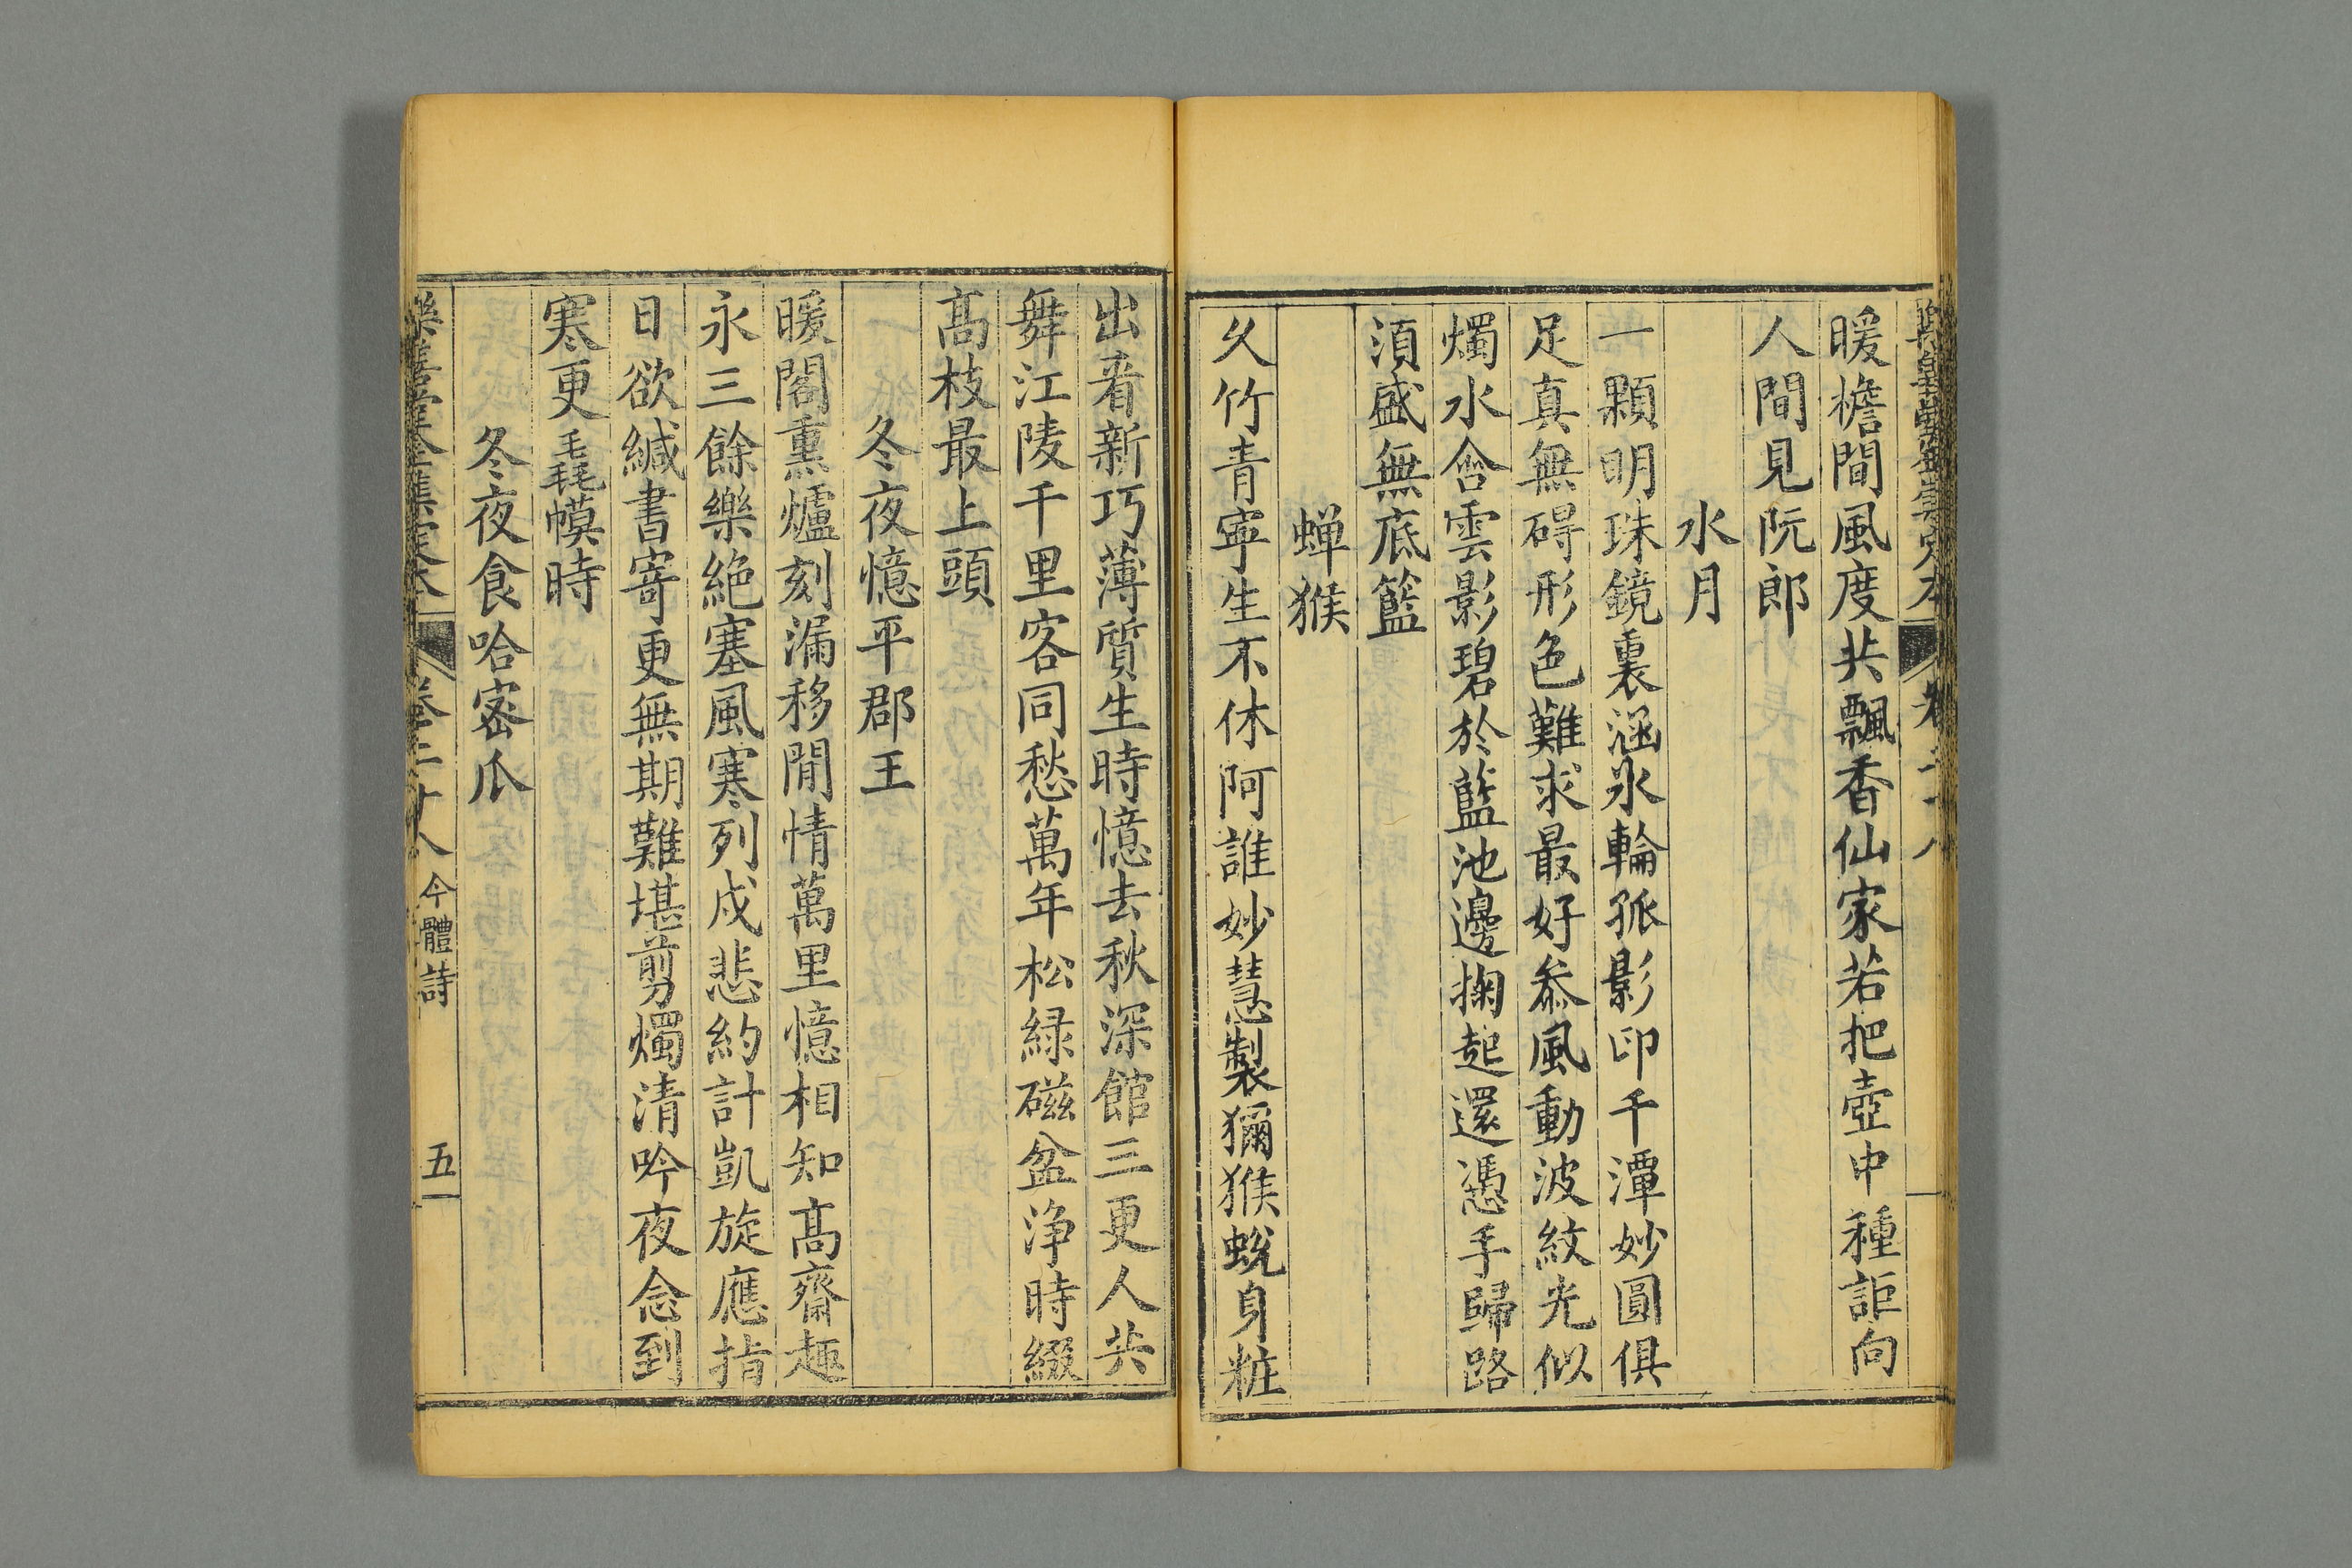 暖檐間風度共飄香仙家若把壺中種詎向
人間見阮郎
水月
一顆明珠鏡裏涵氷輪孤影印千潭妙圓俱
足真無碍形色難求最好叅風動波紋光似
燭水含雲影碧於藍池邊掬起還憑手歸路
湏盛無底籃
蝉猴
乆竹青寧生不休阿誰妙慧製獮猴蜕身粧
出看新巧薄質生時憶去秋深館三更人共
舞江陵千里客同愁萬年松緑磁盆浄時綴
髙枝最上頭
冬夜憶平郡王
暖閣熏爐刻漏移閒情萬里憶相知髙齋趣
永三餘樂絶塞風寒列戍悲約計凱旋應指
日欲緘書寄更無期難堪剪燭清吟夜念到
寒更毳幙時
冬夜食哈宻瓜
樂善堂全集定本
卷二十八
今體詩
五